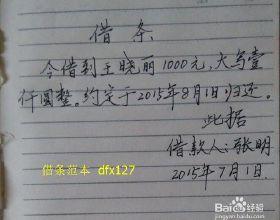 借条
今借到王晓丽1000元,大写壹
仟圆整。约定于2015年8月1日归还。
此据
借款人:张明
2015年7月1日.
借条范本 dfx127
Baidu经验